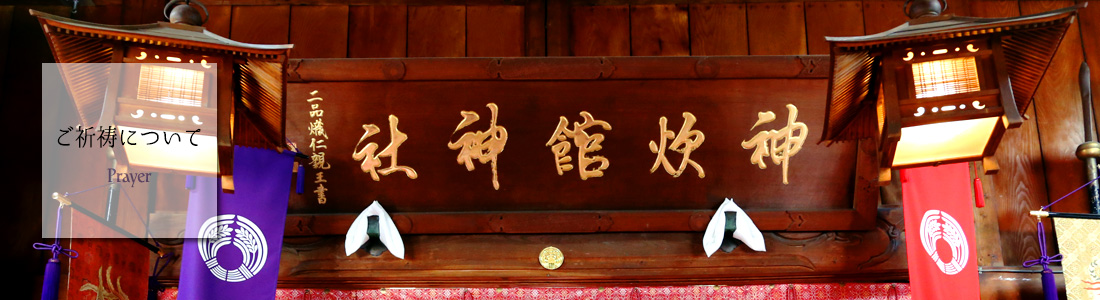 ご祈祷について
Prayer
神炊館神社
二品熾仁親王書